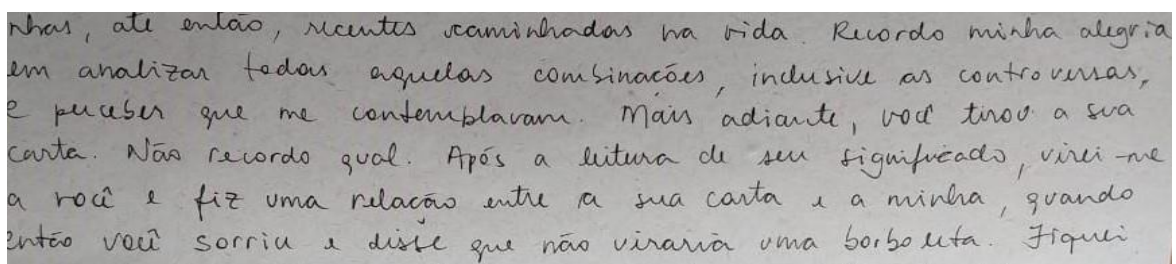 nhas, até então, recentes caminhadas na vida. Recordo minha alegria
em analizar todas aquelas combinações, inclusive as controversas,
e perceber que me contemplavam. Mais adiante, você tirou a sua
carta. Não recordo qual. Após a leitura de seu significado, virei-me
a você e fiz uma relação entre a sua carta e a minha, quando
então você sorriu e disse que não viraria uma borboleta. Fiquei